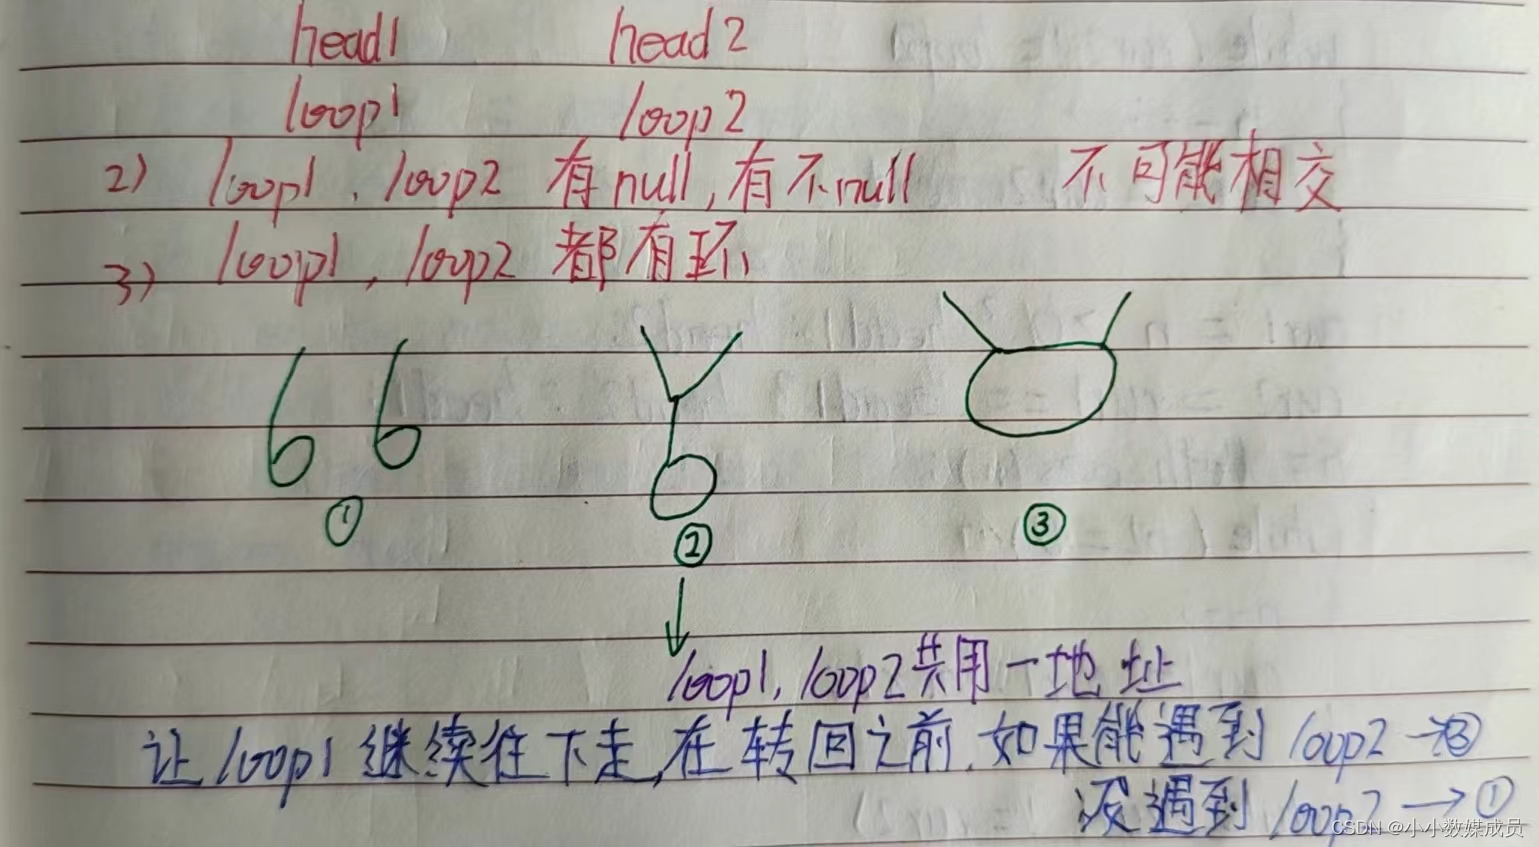 head1 head2
loop1 loop2
2) loop1、loop2 有null,有不null 不可能相交
3) loop1,loop2 都有环
① ② ③
loop1,loop2共用一地址
让loop1继续往下走,在转回之前.如果能遇到loop2→③
没遇到loop2→①
CSDN @小小数媒成员